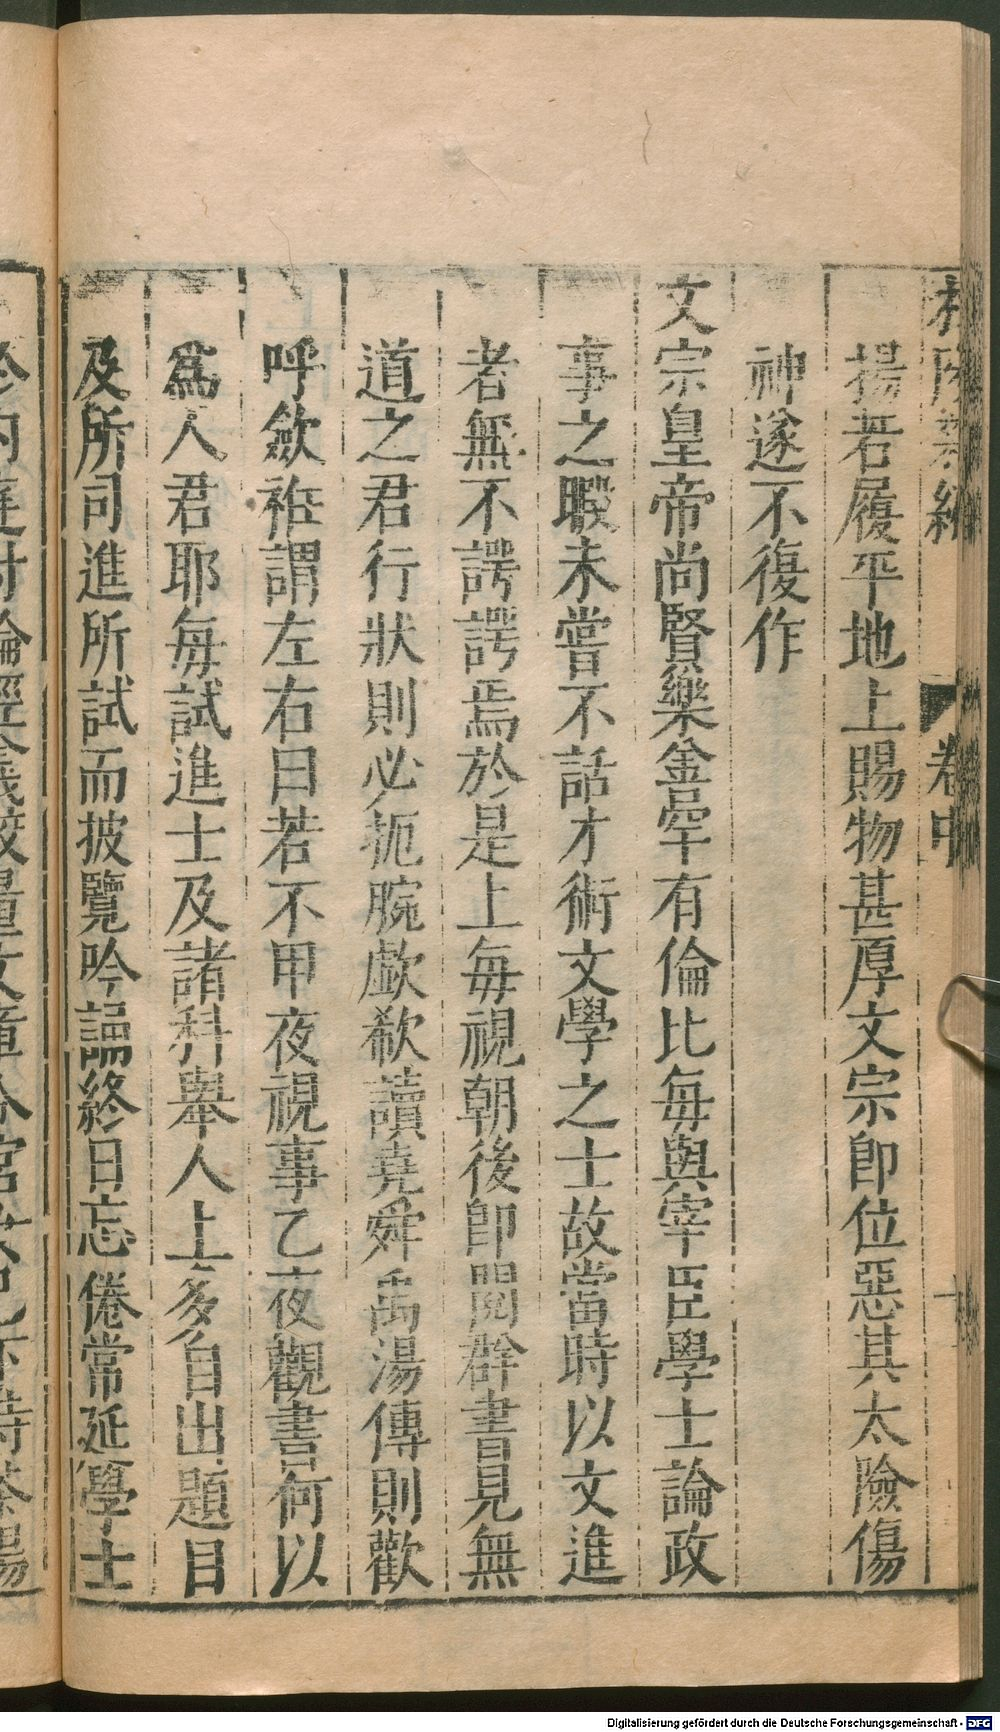 杜陽雜編 卷中
揚若履平地上賜物甚厚文宗即位惡其太險傷
神遂不復作
文宗皇帝尚賢樂善罕有倫比每與宰臣學士論政
事之暇未嘗不話才術文學之士故當時以文進
者無不諤諤焉於是上每視朝後即閱群書見無
道之君行狀則必扼腕歔欷讀堯舜禹湯傳則歡
呼斂袵謂左右曰若不甲夜視事乙夜觀書何以
爲人君耶每試進士及諸科舉人上多自出題目
及所司進所試而披覽吟諷終日忘倦常延學士
於內庭討論經義較量文章令宮女已下侍茶湯
Digitalisierung gefördert durch die Deutsche Forschungsgemeinschaft - DFG